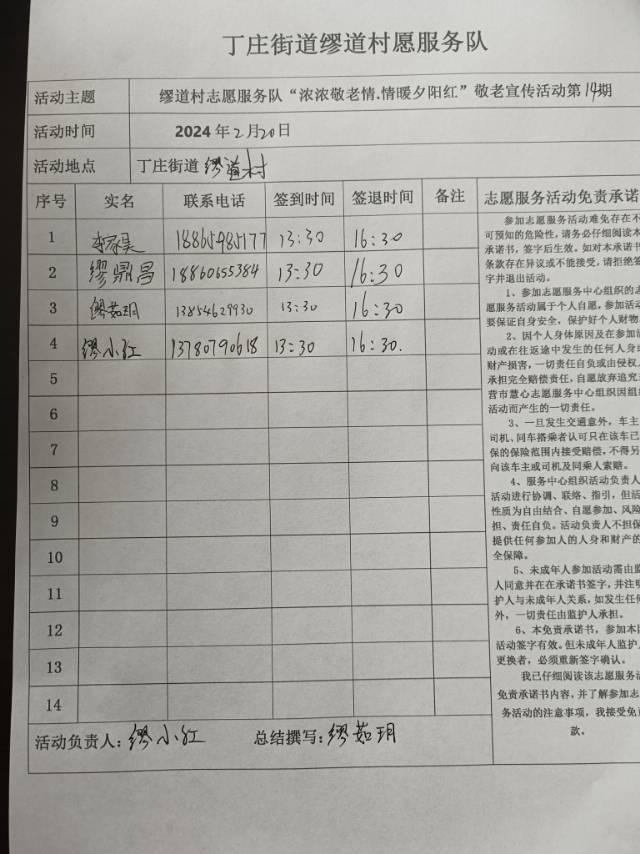 丁庄街道缪道村愿服务队
活动主题 缪道村志愿服务队“浓浓敬老情.情暖夕阳红”敬老宣传活动第14期
活动时间 2024年2月20日
活动地点 丁庄街道缪道村
序号 实名 联系电话 签到时间 签退时间 备注
1 18865985177 13:30 16:30
2 缪鼎昌 18860655384 13:30 16:30
3 缪茹玥 13854629930 13:30 16:30
4 缪小红 13780790618 13:30 16:30.
5
6
7
8
9
10
11
12
13
14
活动负责人:缪小红 总结撰写:缪茹玥
志愿服务活动免责承诺
参加志愿服务活动难免存在不
可预知的危险性,请务必仔细阅读本
承诺书,签字后生效。如对本承诺书
条款存在异议或不能接受,请拒绝签
字并退出活动。
1、参加志愿服务中心组织的志
愿服务活动属于个人自愿,参加活动
要保证自身安全,保护好个人财物
2、因个人身体原因及在参加活
动或在往返途中发生的任何人身
财产损害,一切责任自负或由侵权人
承担完全赔偿责任,自愿放弃追究
营市慧心志愿服务中心组织因组织
活动而产生的一切责任。
3、一旦发生交通意外,车主
司机、同车搭乘者认可只在该车已
保的保险范围内接受赔偿,不得另
向该车主或司机及同乘人索赔。
4、服务中心组织活动负责人
活动进行协调、联络、指引,但活
性质为自由结合、自愿参加、风险
担、责任自负。活动负责人不担保
提供任何参加人的人身和财产的
全保障。
5、未成年人参加活动需由监
人同意并在在承诺书签字,并注明
护人与未成年人关系,如发生任何
外,一切责任由监护人承担。
6、本免责承诺书,参加本
活动签字有效。但未成年人监护人
更换者,必须重新签字确认。
我已仔细阅读该志愿服务活
免责承诺书内容,并了解参加志
务活动的注意事项,我接受免
款。